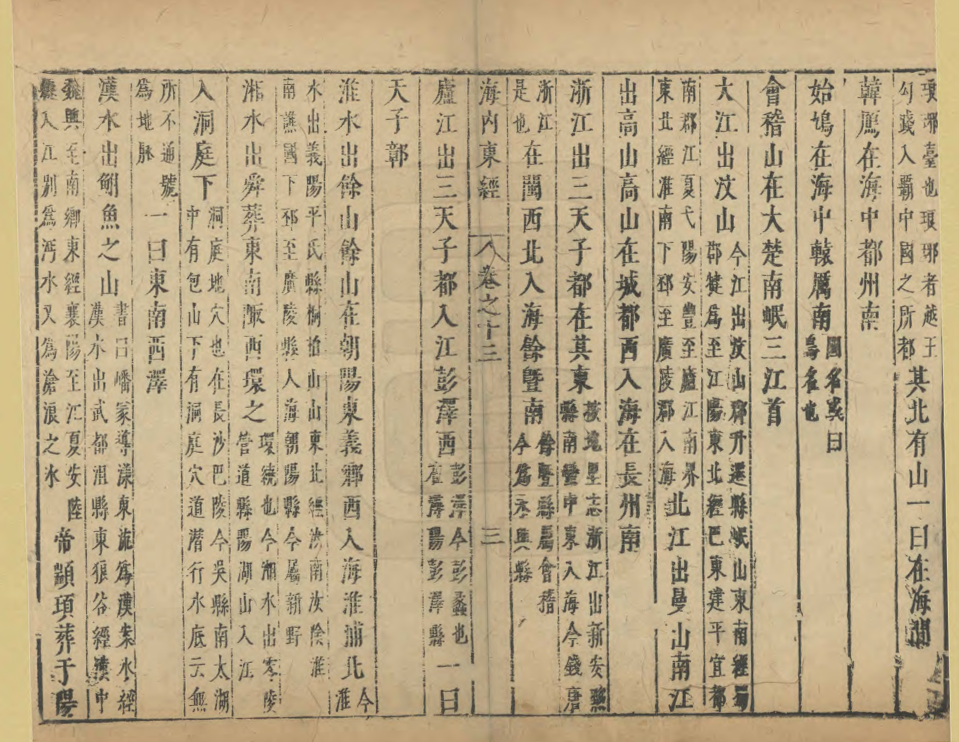 琅琊臺也琅琊者越王勾踐入霸中國之所都其北有山一曰在海間
韓鴈在海中都州南
始鳩在海中轅厲南國名或曰鳥名也
會稽山在大楚南岷三江首
大江出汶山今江出汶山郡升遷縣岷山東南經蜀郡犍為至江陽東北經巴東建平宜都
南郡江夏弋陽安豐至廬江南界東北經淮南下邳至廣陵郡入海北江出曼山南江
出高山高山在城都西入海在長州南
浙江出三天子都在其東按地里志浙江出新安黟縣南蠻中東入海今錢唐
浙江是也在閩西北入海餘暨南餘暨縣屬會稽今為永興縣
海內東經 卷之十三 三
廬江出三天子都入江彭澤西彭澤今彭蠡也在尋陽彭澤縣一曰
天子鄣
淮水出餘山餘山在朝陽東義鄉西入海淮浦北今淮
水出義陽平氏縣桐柏山山東北經汝南汝陰淮南譙國下邳至廣陵縣入海朝陽縣今屬新野
湘水出舜葬東南陬西環之環繞也今湘水出零陵營道縣陽湖山入江
入洞庭下洞庭地穴也在長沙巴陵今吳縣南太湖中有包山下有洞庭穴道潛行水底云無
所不通號為地脉一曰東南西澤
漢水出鮒魚之山書曰嶓冢導漾東流為漢案水經漢水出武都沮縣東狼谷經漢中
魏興至南鄉東經襄陽至江夏安陸縣入江別為沔水又為滄浪之水帝顓頊葬于陽